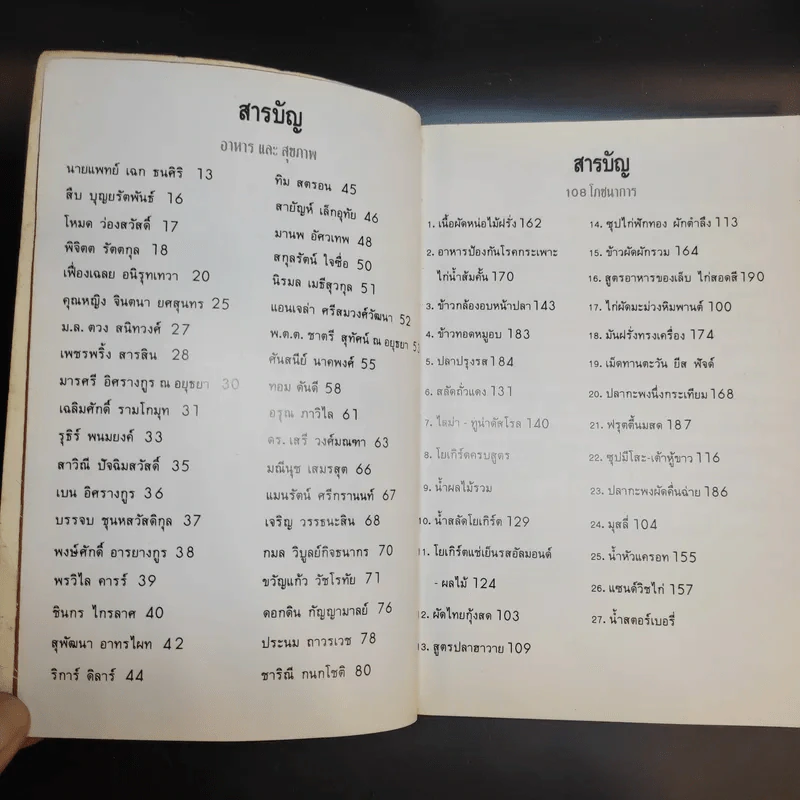 สารบัญ
อาหาร และ สุขภาพ
นายแพทย์ เฉก ธนศิริ 13
สืบ บุญยรัตพันธ์ 16
โหมด ว่องสวัสดิ์ 17
พิจิตต รัตตกุล 18
เฟื่องเฉลย อนิรุทเทวา 20
คุณหญิง จินตนา ยศสุนทร 25
ม.ล. ตวง สนิทวงศ์ 27
เพชรพริ้ง สารสิน 28
มารศรี อิศรางกูร ณ อยุธยา 30
เฉลิมศักดิ์ รามโกมุท 31
รุธิร์ พนมยงค์ 33
สาวิณี ปัจฉิมสวัสดิ์ 35
เบน อิศรางกูร 36
บรรจบ ชุนหสวัสดิกุล 37
พงษ์ศักดิ์ อารยางกูร 38
พรวิไล คารร์ 39
ชินกร ไกรลาศ 40
สุพัฒนา อาทรไผท 42
ริการ์ ดิลาร์ 44
ทิม สตรอน 45
สายัญห์ เล็กอุทัย 46
มานพ อัศวเทพ 48
สกุลรัตน์ ใจซื่อ 50
นิรมล เมธีสุวกุล 51
แอนเจล่า ศรีสมวงศ์วัฒนา 52
พ.ต.ต. ชาตรี สุทัศน์ ณ อยุธยา
ศันสนีย์ นาคพงศ์ 55
ทอม ดันดี 58
อรุณ ภาวิไล 61
ดร. เสรี วงศ์มณฑา 63
มณีนุช เสมรสุต 66
แมนรัตน์ ศรีกรานนท์ 67
เจริญ วรรธนะสิน 68
กมล วิบูลย์กิจธนากร 70
ขวัญแก้ว วัชโรทัย 71
ดอกดิน กัญญามาลย์ 76
ประนม ถาวรเวช 78
ชาริณี กนกโชติ 80
สารบัญ
108 โภชนาการ
1. เนื้อผัดหน่อไม้ฝรั่ง 162
2. อาหารป้องกันโรคกระเพาะ
ไก่น้ำส้มคั้น 170
3. ข้าวกล้องอบหน้าปลา 143
4. ข้าวทอดหมูอบ 183
5. ปลาปรุงรส 184
6. สลัดถั่วแดง 131
7. ไลม่า - ทูน่าดัสโรล 140
8. โยเกิร์ตครบสูตร
9. น้ำผลไม้รวม
10. น้ำสลัดโยเกิร์ต 129
11. โยเกิร์ตแช่เย็นรสอัลมอนด์
- ผลไม้ 124
12. ผัดไทยกุ้งสด 103
13. สูตรปลาฮาวาย 109
14. ซุปไก่ฟักทอง ผักตำลึง 113
15. ข้าวผัดผักรวม 164
16. สูตรอาหารของเล็บ ไก่สอดสี 190
17. ไก่ผัดมะม่วงหิมพานต์ 100
18. มันฝรั่งทรงเครื่อง 174
19. เม็ดทานตะวัน ยีส ฟัจด์
20. ปลากะพงนึ่งกระเทียม 168
21. ฟรุตตี้นมสด 187
22. ซุปมิโสะ-เต้าหู้ขาว 116
23. ปลากะพงผัดคื่นฉ่าย 186
24. มุสลี่ 104
25. น้ำหัวแครอท 155
26. แซนด์วิชไก่ 157
27. น้ำสตอร์เบอรี่